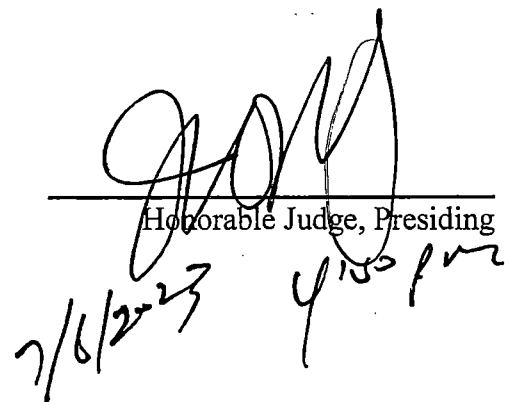 Honorable Judge, Presiding
7/6/2023 4:50 pm